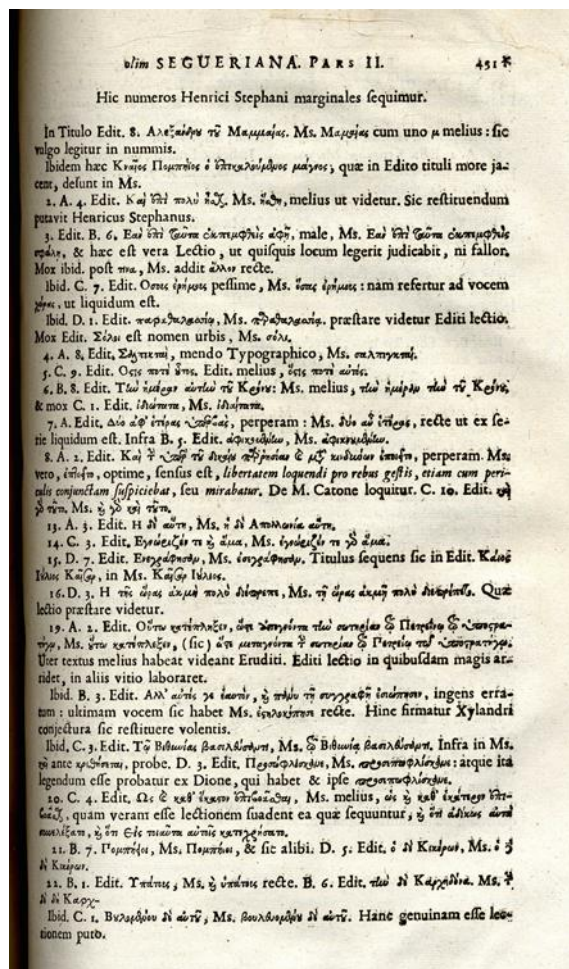 olim SEGUERIANA. PARS II. 451
Hic numeros Henrici Stephani marginales sequimur.
In Titulo Edit. 8. Ἀλεξάνδρου τοῦ Μαμμαίας. Ms. Μαμαίας cum uno μ melius : sic
vulgo legitur in nummis.
Ibidem hæc Κναῖος Πομπήιος ὁ ἐπικαλούμενος μάγνος, quæ in Edito tituli more ja-
cent, desunt in Ms.
2. A. 4. Edit. Καὶ ἐπὶ πολὺ Ms. melius ut videtur. Sic restituendum
putavit Henricus Stephanus.
3. Edit. B. 6. Ἐὰν ἐπὶ ταῦτα ἐκπεμφθεὶς male, Ms. Ἐὰν ἐπὶ ταῦτα ἐκπεμφθεὶς
& hæc est vera Lectio, ut quisquis locum legerit judicabit, ni fallor.
Mox ibid. post τινα, Ms. addit ἄλλον recte.
Ibid. C. 7. Edit. Ὅσοις ἐρήμοις pessime, Ms. ὅσας ἐρήμοις : nam refertur ad vocem
χώρας, ut liquidum est.
Ibid. D. 1. Edit. Ms. præstare videtur Editi lectio.
Mox Edit. Σόλοι est nomen urbis, Ms. σόλι.
4. A. 8. Edit. Σαλπικταὶ, mendo Typographico, Ms. σαλπιγκταί.
5. C. 9. Edit. Ὅστις ποτὲ οὗτος. Edit. melius, ὅστις ποτὲ αὐτός.
6. B. 8. Edit. Τὴν ἡμέραν αὐτὴν τοῦ Κρόνου: Ms. melius, τὴν ἡμέραν τὴν τοῦ Κρόνου,
& mox C. 1. Edit. ἰδιώτατα, Ms. ἰδιαίτατα.
7. A. Edit. Δύο ἀφ' ἑτέρας perperam : Ms. δύο recte ut ex se-
rie liquidum est. Infra B. 5. Edit. Ms. ἀφικνουμένων.
8. A. 2. Edit. Καὶ perperam. Ms.
vero, optime, sensus est, libertatem loquendi pro rebus gestis, etiam cum peri-
culis conjunctam suspiciebat, seu mirabatur. De M. Catone loquitur. C. 10. Edit. καὶ
γὰρ τοῦτο. Ms. καὶ γὰρ καὶ τοῦτο.
13. A. 3. Edit. Ἡ δὲ αὕτη, Ms. ἡ δὲ Ἀπολλωνία αὕτη.
14. C. 3. Edit. Ἐγνώριζέν τε καὶ ἅμα, Ms. ἐγνώριζέν τε γὰρ ἅμα.
15. D. 7. Edit. Ἐνεγράφησαν, Ms. ἐσεγράφησαν. Titulus sequens sic in Edit. Κάιος
Ἰούλιος Καῖσαρ, in Ms. Καῖσαρ Ἰούλιος.
16. D. 3. Ἡ τῆς ὥρας ἀκμὴ πολὺ διέπρεπε, Ms. τῇ ὥρας ἀκμῇ πολὺ διέπρεπε. Quæ
lectio præstare videtur.
19. A. 2. Edit. Οὕτω κατέπληξεν, ὥστε
Ms. οὕτω κατέπληξεν, (sic) ὥστε μεταγνόντα
Uter textus melius habeat videant Eruditi. Editi lectio in quibusdam magis ar-
ridet, in aliis vitio laboraret.
Ibid. B. 3. Edit. Ἀλλ' αὐτός γε ἑαυτὸν, τῇ συγγραφῇ ἐσιώπησεν, ingens erra-
tum : ultimam vocem sic habet Ms. recte. Hinc firmatur Xylandri
conjectura sic restituere volentis.
Ibid. C. 3. Edit. Τῷ Βιθυνίας βασιλεύσαντι, Ms. τοῦ Βιθυνίας βασιλεύσαντι. Infra in Ms.
ante probe. D. 3. Edit. Προσωφλίσκανε, Ms. προσεπωφλίσκανε : atque ita
legendum esse probatur ex Dione, qui habet & ipse προσεπωφλίσκανε.
20. C. 4. Edit. Ὡς καὶ καθ' ἕκαστον Ms. melius, ὡς καὶ καθ' ἑκάτερον
quam veram esse lectionem suadent ea quæ sequuntur, καὶ ὅτι ἀδίκως αὐτὰ
συνελέξατο, καὶ ὅτι ἐς τοιαῦτα αὐτοῖς κατεχρήσατο.
21. B. 7. Πομπήιοι, Ms. Πομπήιον, & sic alibi. D. 5. Edit. ὁ δὲ Κικέρων, Ms. ὁ
δὲ Κικέρων.
22. B. 1. Edit. Ὑπάτοις, Ms. καὶ ὑπάτοις recte. B. 6. Edit. τὴν δὲ Καρχηδόνα. Ms.
δὲ Καρχ-
Ibid. C. 1. Βουλομένου δὲ αὐτοῦ, Ms. βουλευομένου δὲ αὐτοῦ. Hanc genuinam esse lec-
tionem puto.